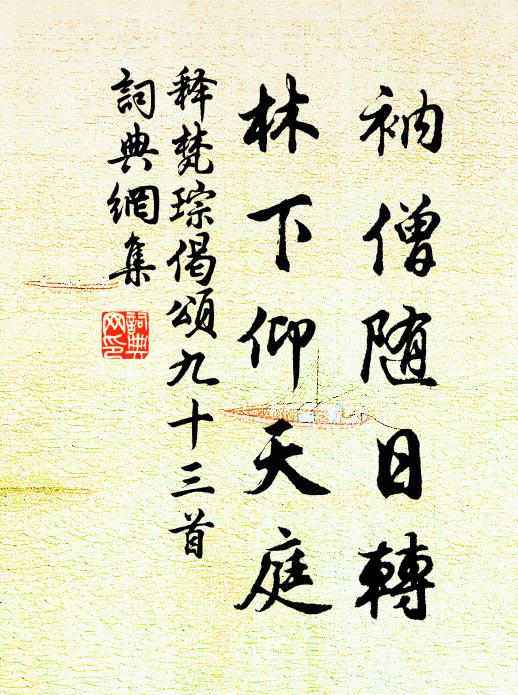 衲僧随日轉
林下仰天庭
释梵琮偈頌九十三首
詞典網集
詞典網印